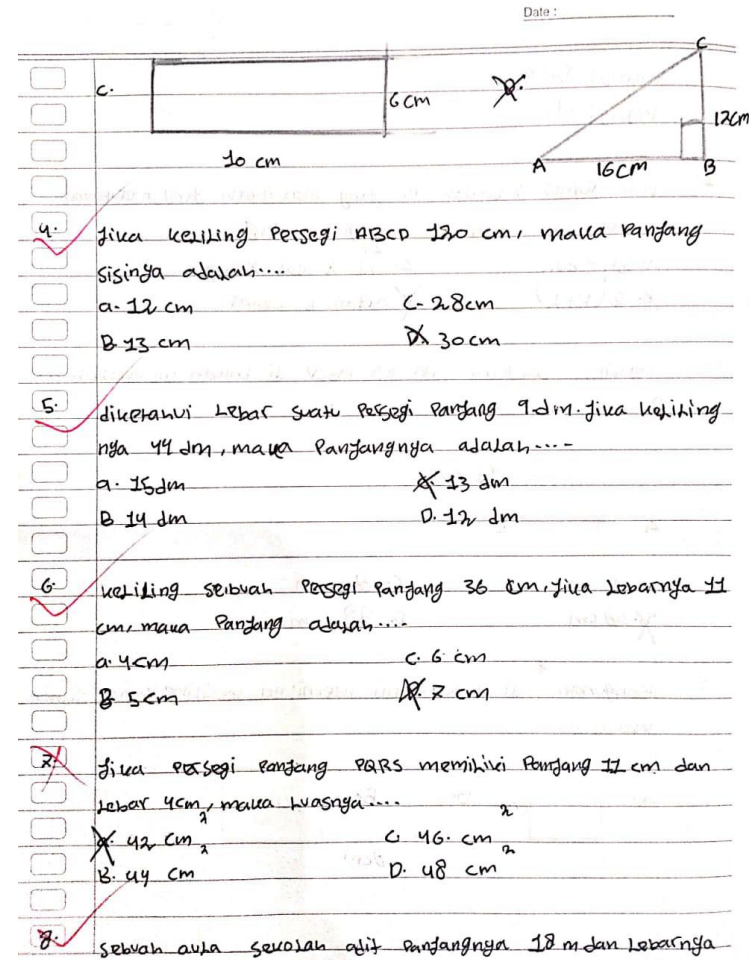 Date :
C. 6 cm
10 cm
D. A B C 16 cm 12 cm
4. Jika keliling Persegi ABCD 120 cm, maka Panjang
sisinya adalah....
a. 12 cm C. 28 cm
B. 13 cm D. 30 cm
5. diketahui Lebar suatu Persegi Panjang 9 dm. Jika keliling
nya 44 dm, maka Panjangnya adalah....
a. 15 dm C. 13 dm
B. 14 dm D. 12 dm
6. keliling seibuah Persegi Panjang 36 cm, Jika Lebarnya 11
cm, maka Panjang adalah....
a. 4 cm C. 6 cm
B. 5 cm D. 7 cm
7. Jika Persegi Panjang PQRS memiliki Panjang 11 cm dan
Lebar 4 cm, maka Luasnya....
a. 42 cm² C. 46. cm²
B. 44 cm² D. 48 cm²
8. Sebuah aula sekolah Panjangnya 18 m dan Lebarnya